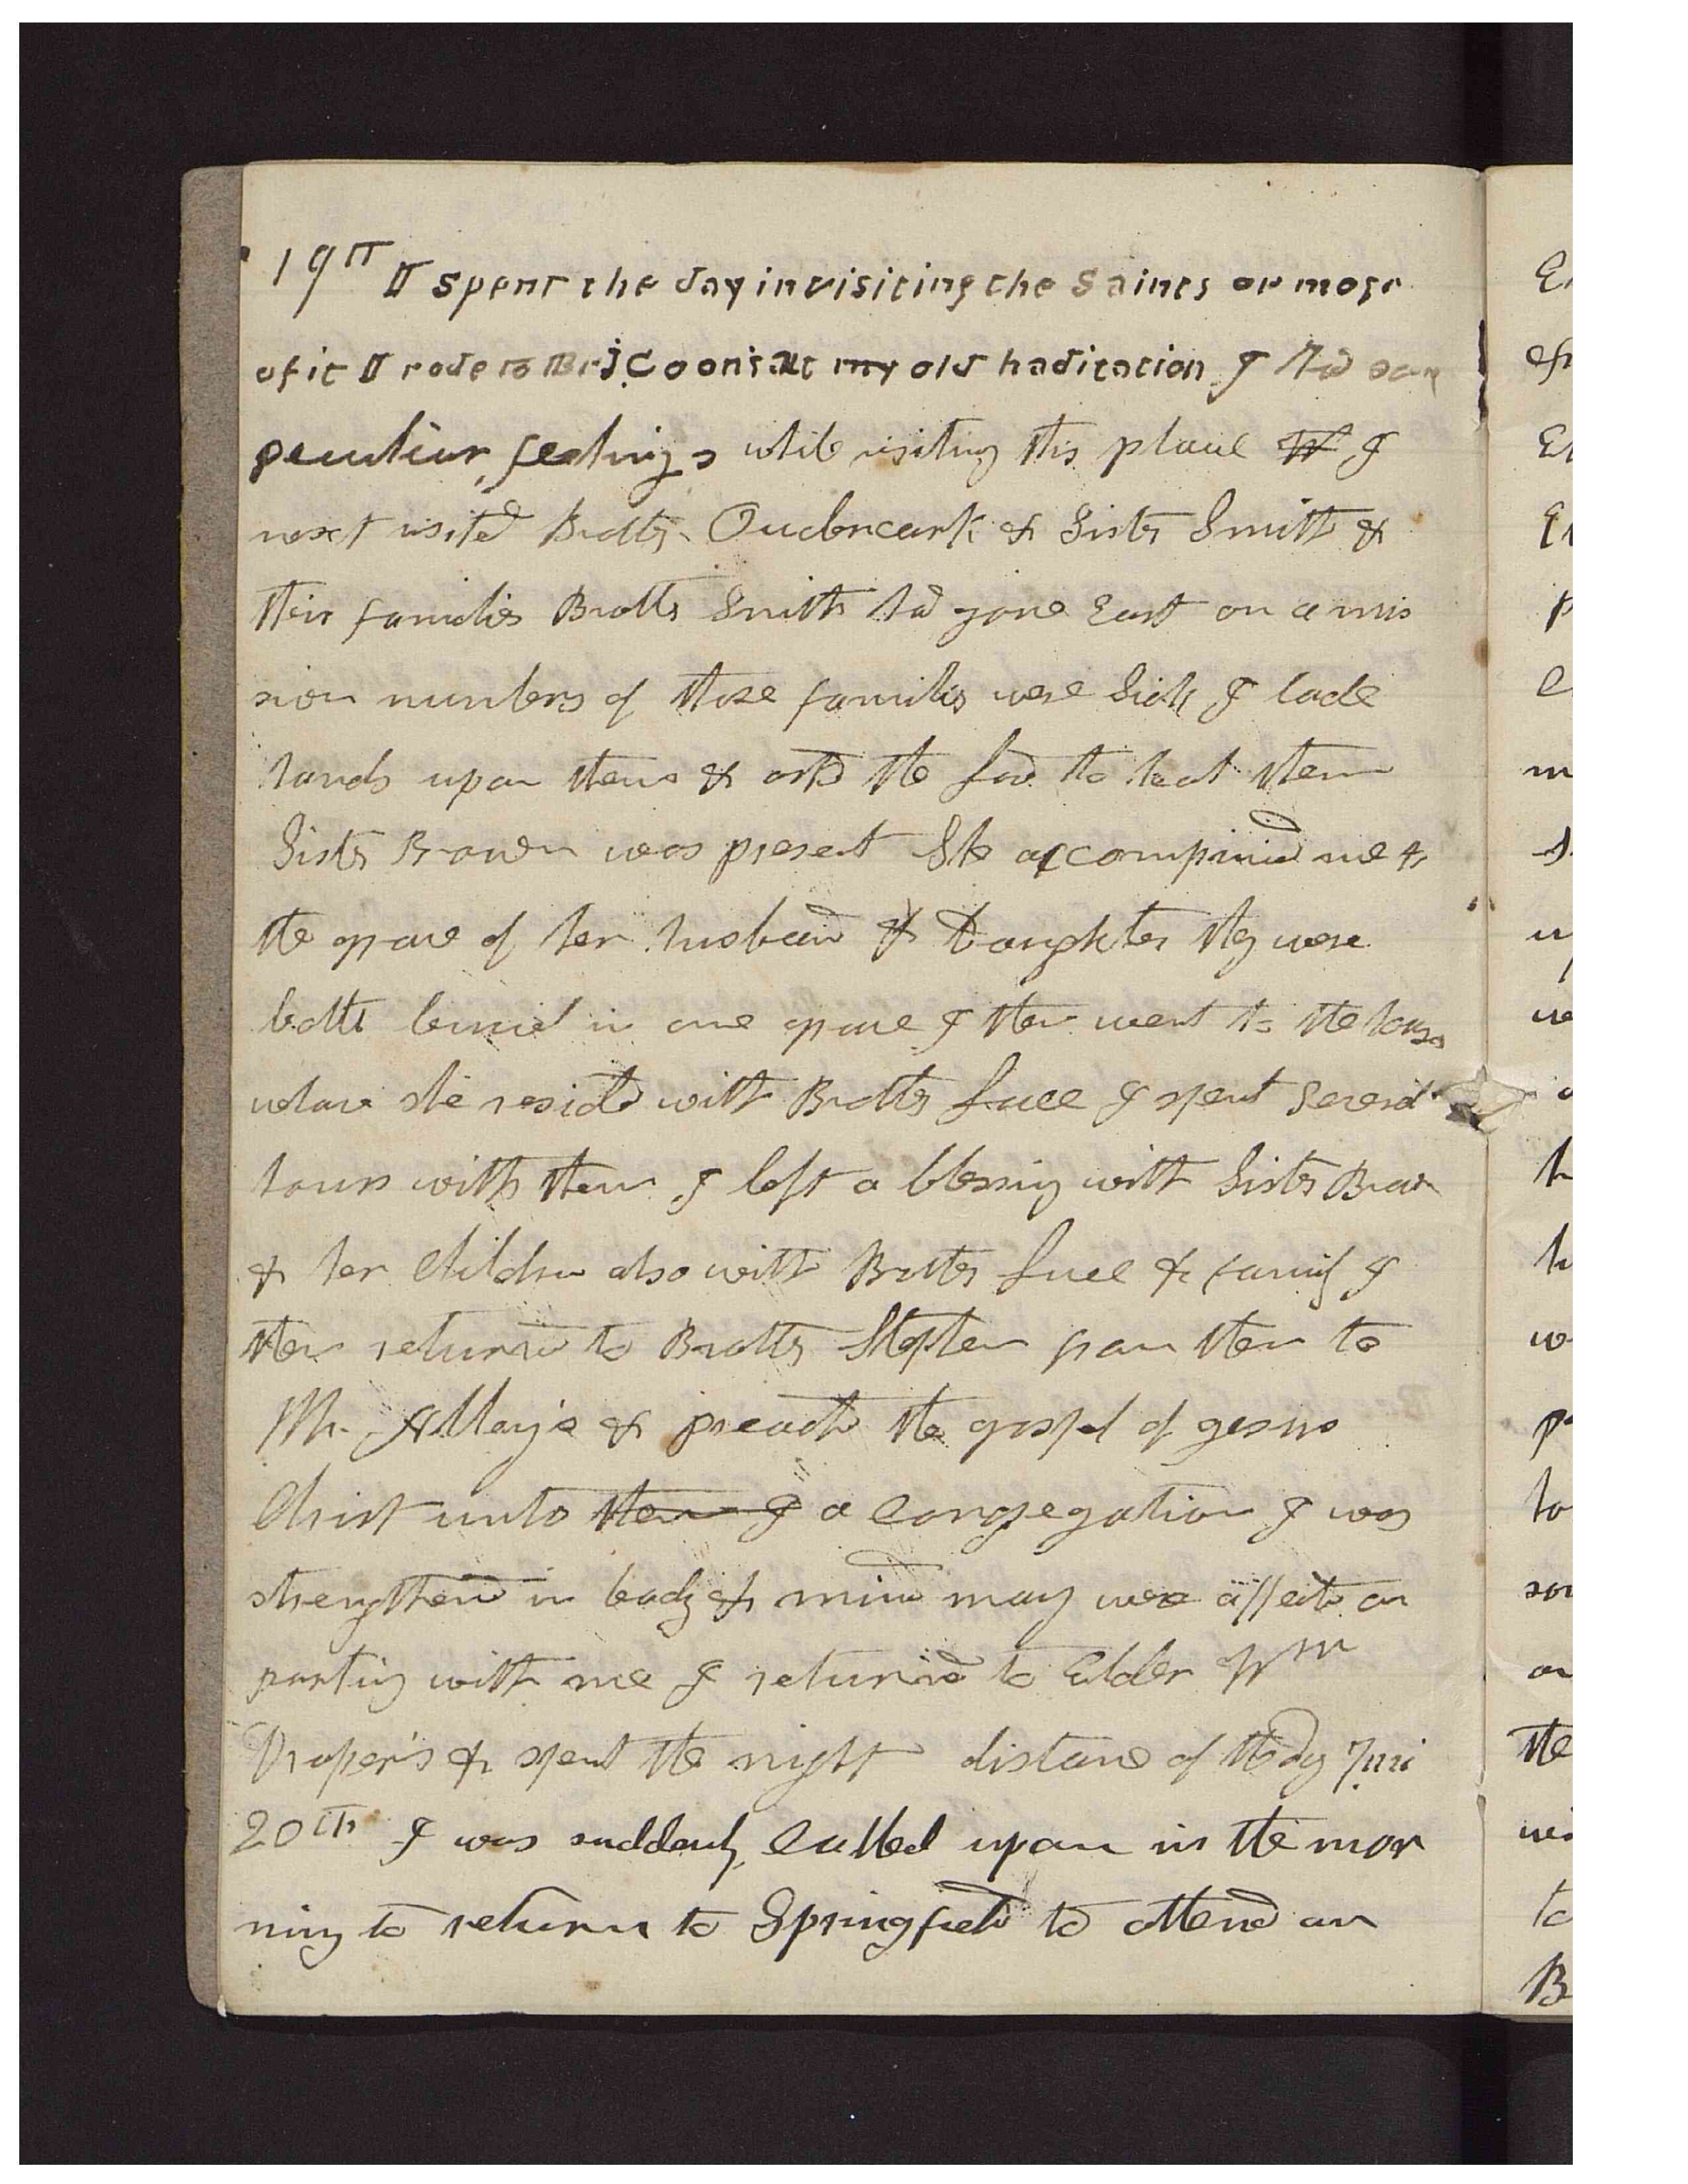 19th I spent the day in visiting the Saints or most
of it I rode to Br J. Coons at my old habitation I had som
peculiar feelings while visiting this place W I
next visited Brother Ouderceark & Sister Smith &
their families Brother Smith had gone East on a mis
sion numbers of those families were Sick I lade
hands upon them & asked the Lord to heal them
Sister Brown was present She accompinied me to
the grave of her husband & Daughter they were
both buried in one grave I then went to the house
whare she resided with Brother Luce I spent several
hours with them I left a blessing with Sister Brown
& her Children also with Brother Luce & family I
then returned to Brother Stephen from then to
Mr. Alley's & preached the gospel of gesus
Christ unto them I a congregation I was
strengthened in body & mind many were affected on
parting with me I returned to Elder Wm
Draper's & spent the night distance of the day 7 mi
20th I was suddenly called upon in the mor
ning to return to Springfield to attend an